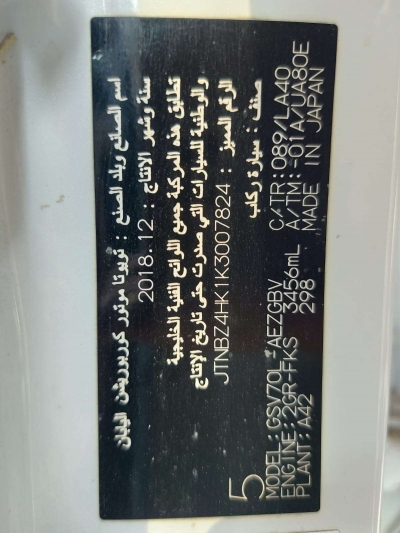 اسم الصانع وبلد الصنع : تويوتا موتور كوربوريشن اليابان
سنة وشهر الانتاج : 2018.12
تطابق هذه المركبة جميع اللوائح الفنية الخليجية
والوطنية للسيارات التي صدرت حتى تاريخ الإنتاج
الرقم المميز : JTNBZ4HK1K3007824
صنف : سيارة ركاب
5
MODEL: GSV70L-AEZGBV C/TR: 089/LA40
ENGINE: 2GR-FKS 3456mL A/TM: -01A/UA80E
PLANT: A42 298 MADE IN JAPAN